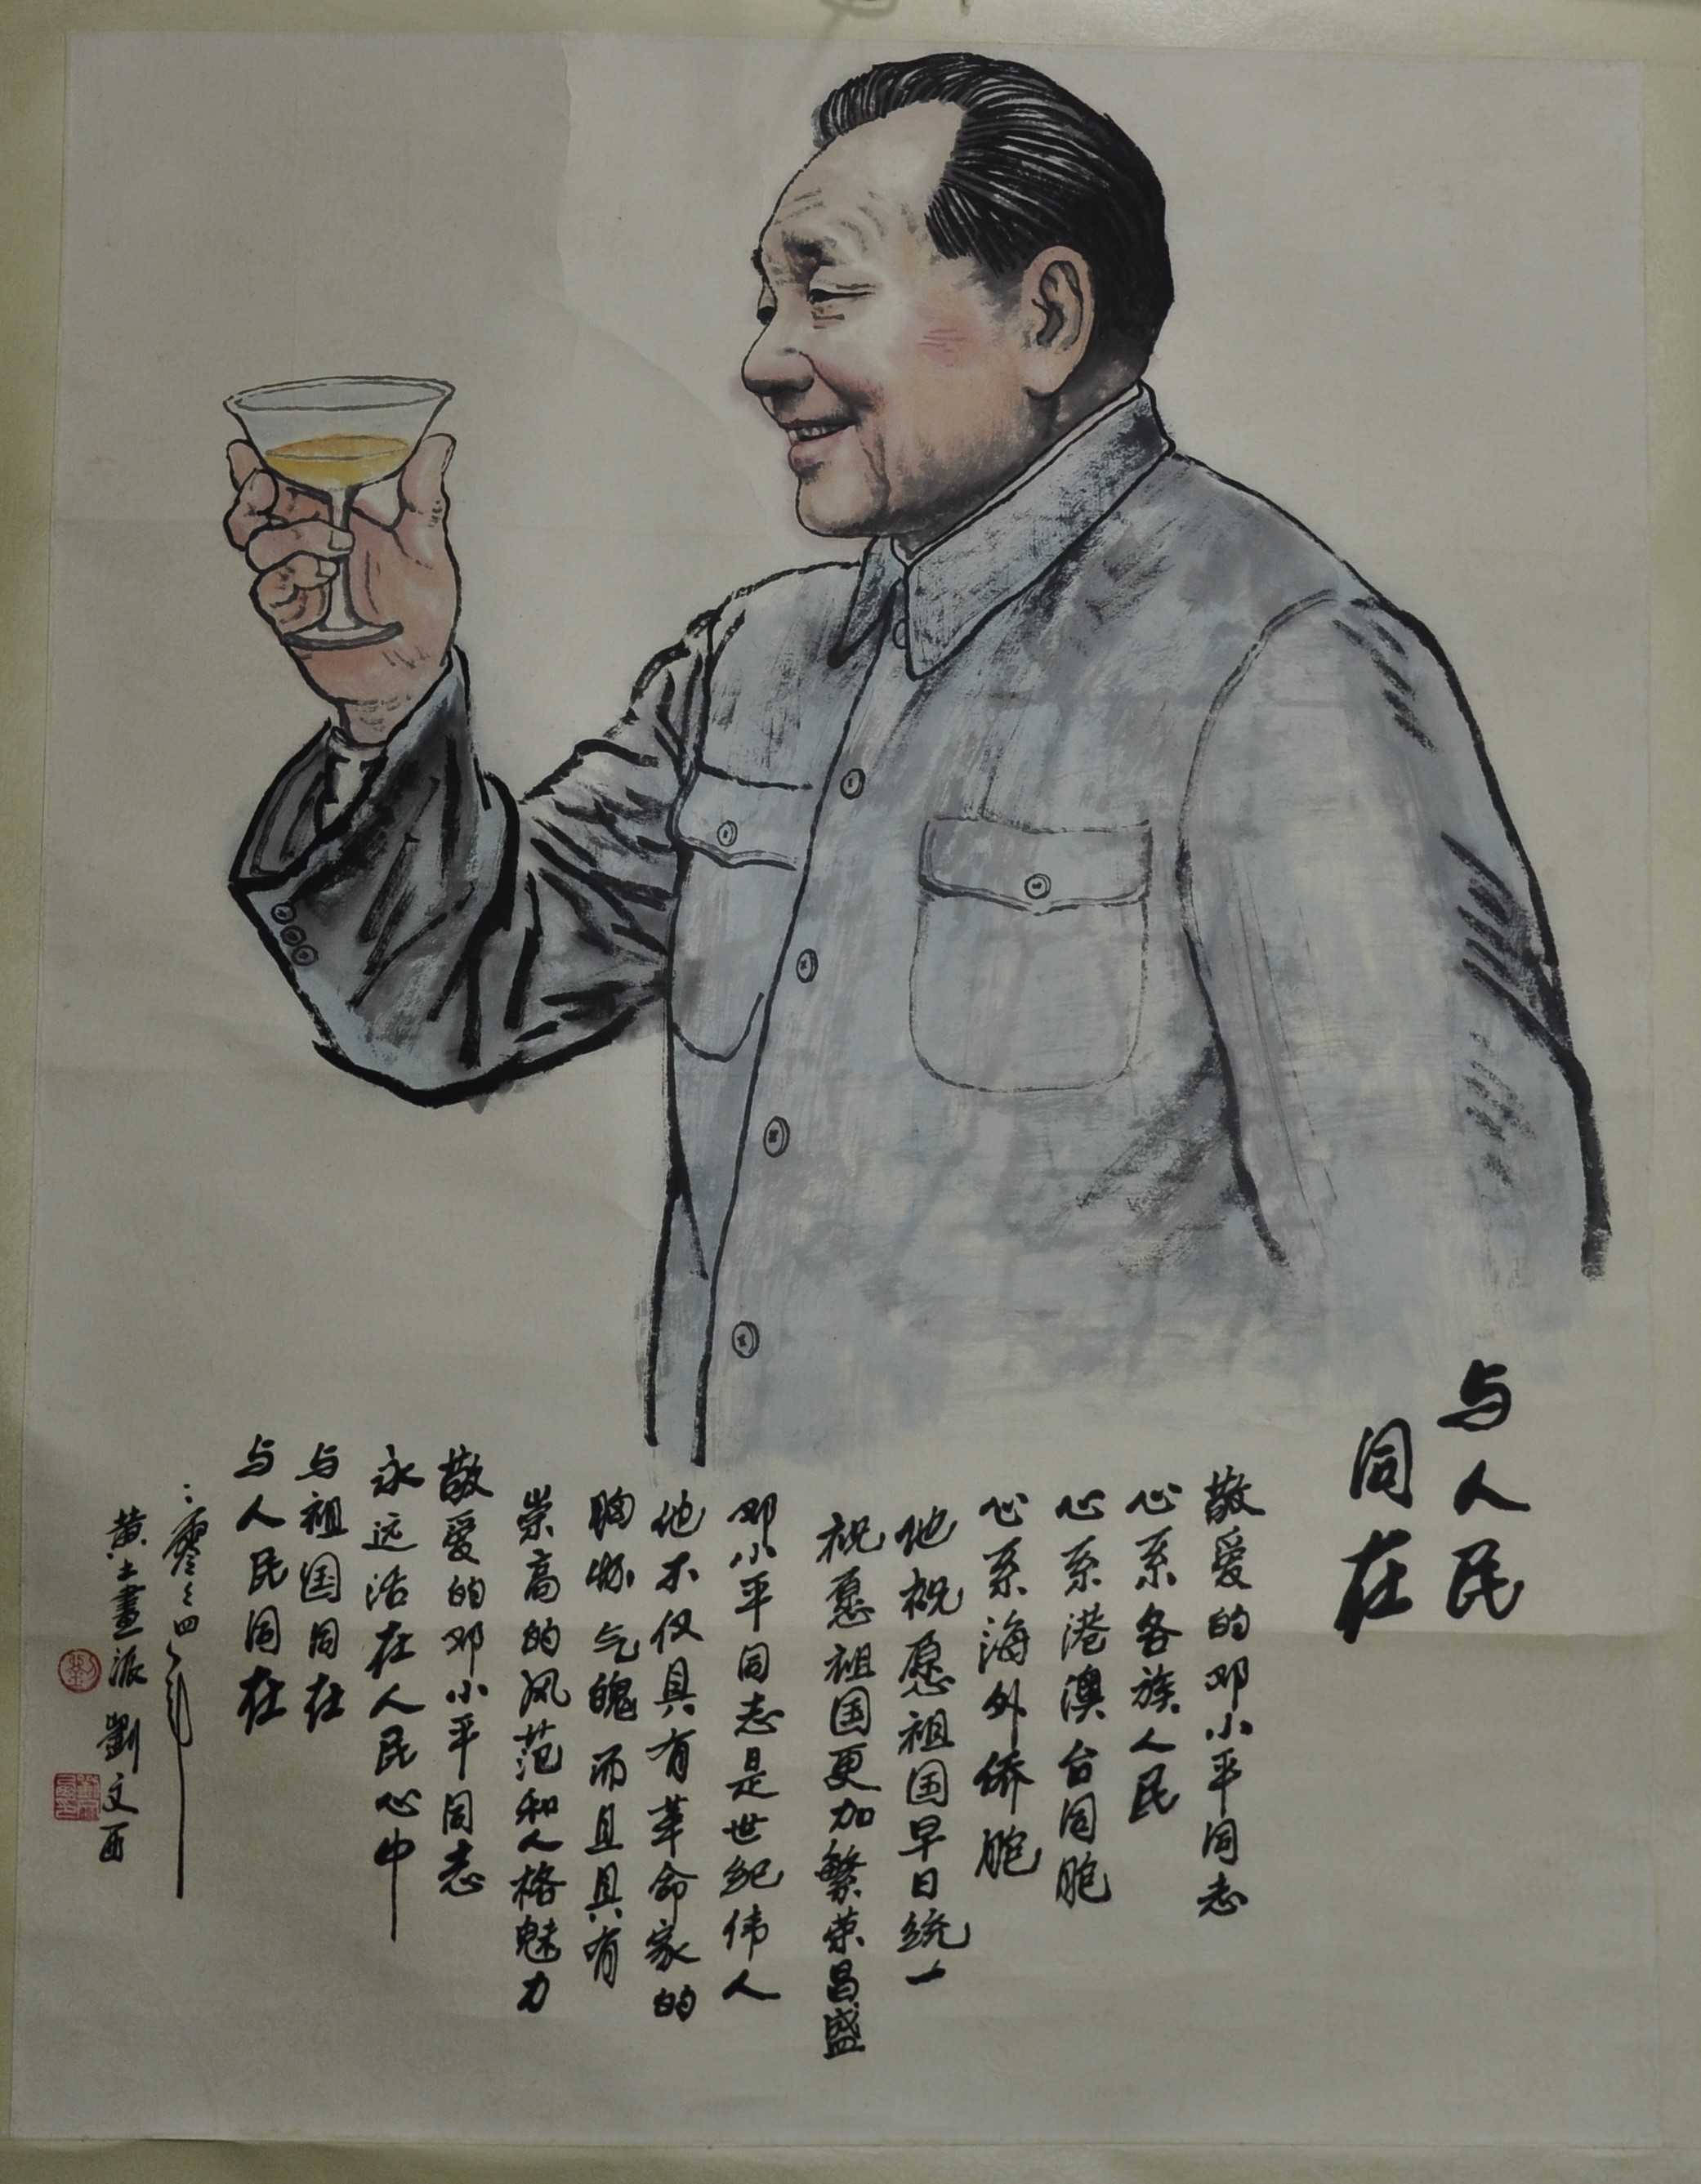 与人民
同在
敬爱的邓小平同志
心系各族人民
心系港澳台同胞
心系海外侨胞
他祝愿祖国早日统一
祝愿祖国更加繁荣昌盛
邓小平同志是世纪伟人
他不仅具有革命家的
胸怀气魄而且具有
崇高的风范和人格魅力
敬爱的邓小平同志
永远活在人民心中
与祖国同在
与人民同在
二零零四年
黄土畫派 劉文西